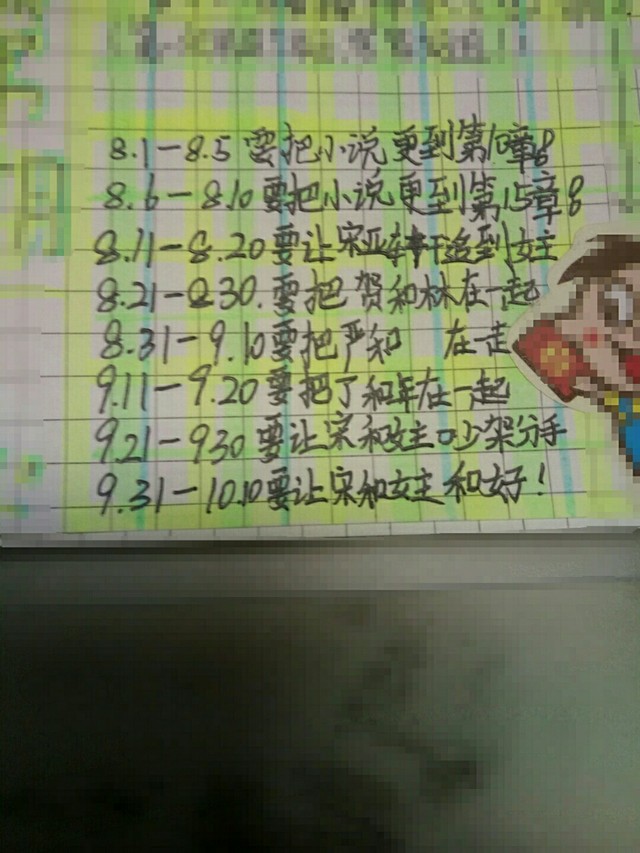 8.1-8.5 要把小说更到第10章8
8.6-8.10要把小说更到第15章8
8.11-8.20要让宋亚轩追到女主
8.21-830.要把贺和林在一起
8.31-9.10要把严和 在一走
9.11-9.20要把丁和年在一起
9.21-930要让宋和女主口少架分手
9.31-10.10要让宋和女主和好!